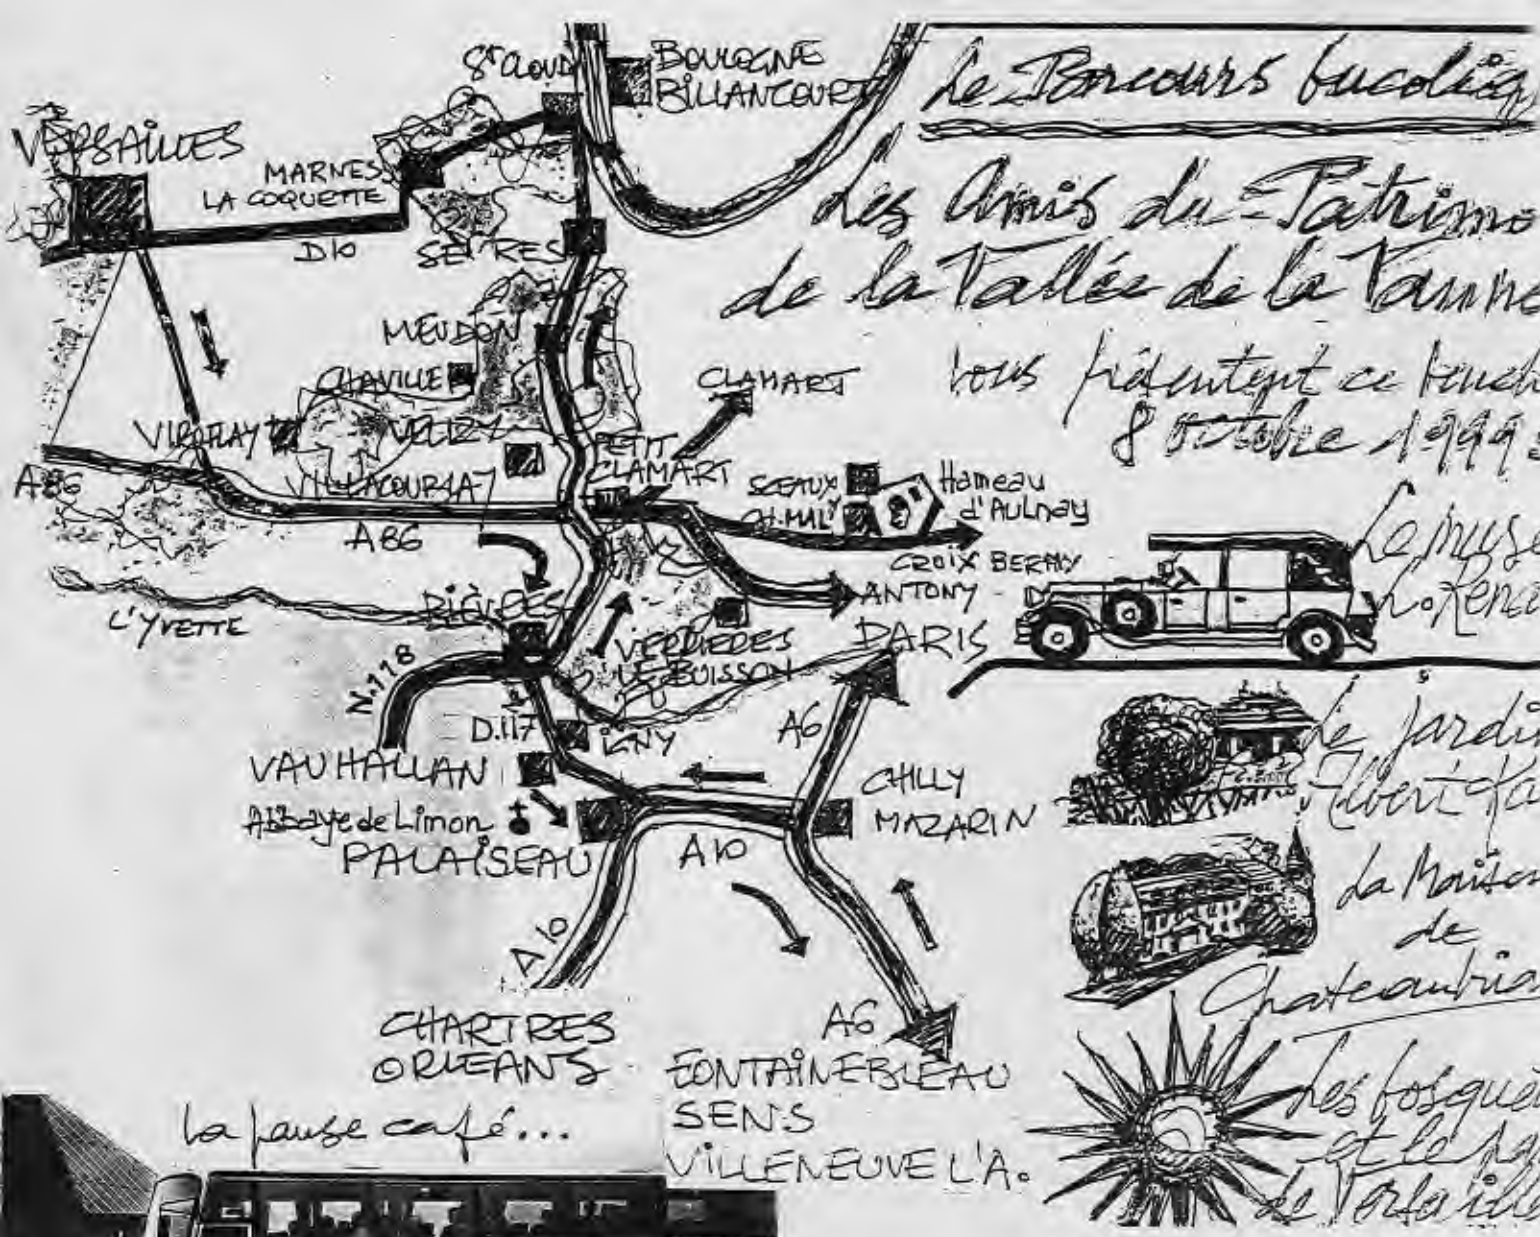 St CLOUD
BOULOGNE
BILLANCOURT
VERSAILLES
MARNES
LA COQUETTE
D10
SEVRES
MEUDON
CHAVILLE
VIROFLAY
VELIZY
VILLACOUBLAY
A86
A86
PETIT
CLAMART
CLAMART
SCEAUX
CH. MALY
Hameau
d'Aulnay
CROIX BERNY
ANTONY
PARIS
L'YVETTE
BIÈVRES
VERRIERES
LE BUISSON
N.118
D.117
IGNY
VAUHALLAN
Abbaye de Limon
PALAISEAU
A6
CHILLY
MAZARIN
A10
A10
CHARTRES
ORLEANS
A6
FONTAINEBLEAU
SENS
VILLENEUVE L'A.
la pause café...
Le Parcours bucoliq
Les Amis du Patrimo
de la Vallée de la Vanne
vous présentent ce
8 octobre 1999
Le mus
L. Rena
Le jardi
Albert Ka
La Maison
de
Chateaubria
Les bosque
et le
de Versaille